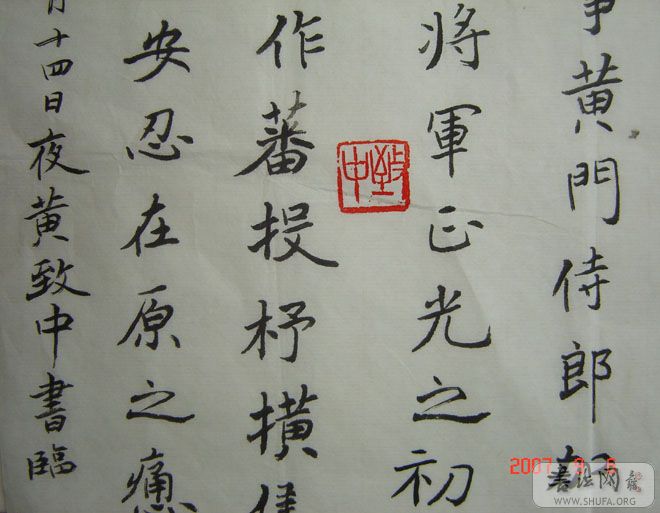 黄門侍郎
将軍正光之初
作蕃投杼横
安忍在原之痛
十四日夜黄致中書臨
致中
2007
書法网
WWW.SHUFA.ORG